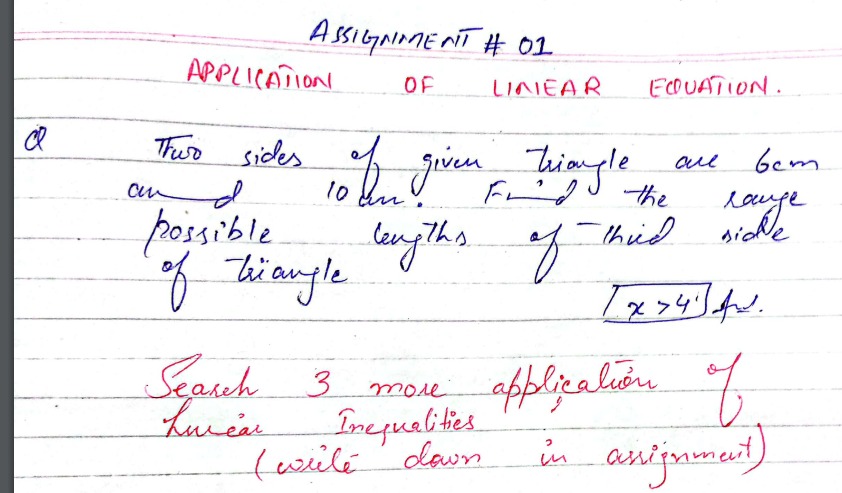 ASSIGNMENT # 01
APPLICATION OF LINEAR EQUATION.
Q Two sides of given triangle are 6cm
and 10 cm. Find the range
possible lengths of third side
of triangle
x > 4 Ans.
Search 3 more application of
Linear Inequalities
(write down in assignment)